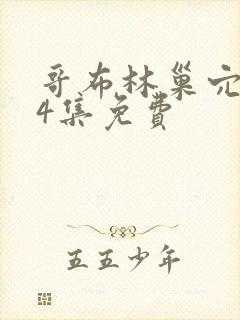 哥布林巢穴
4集免費
五五少年